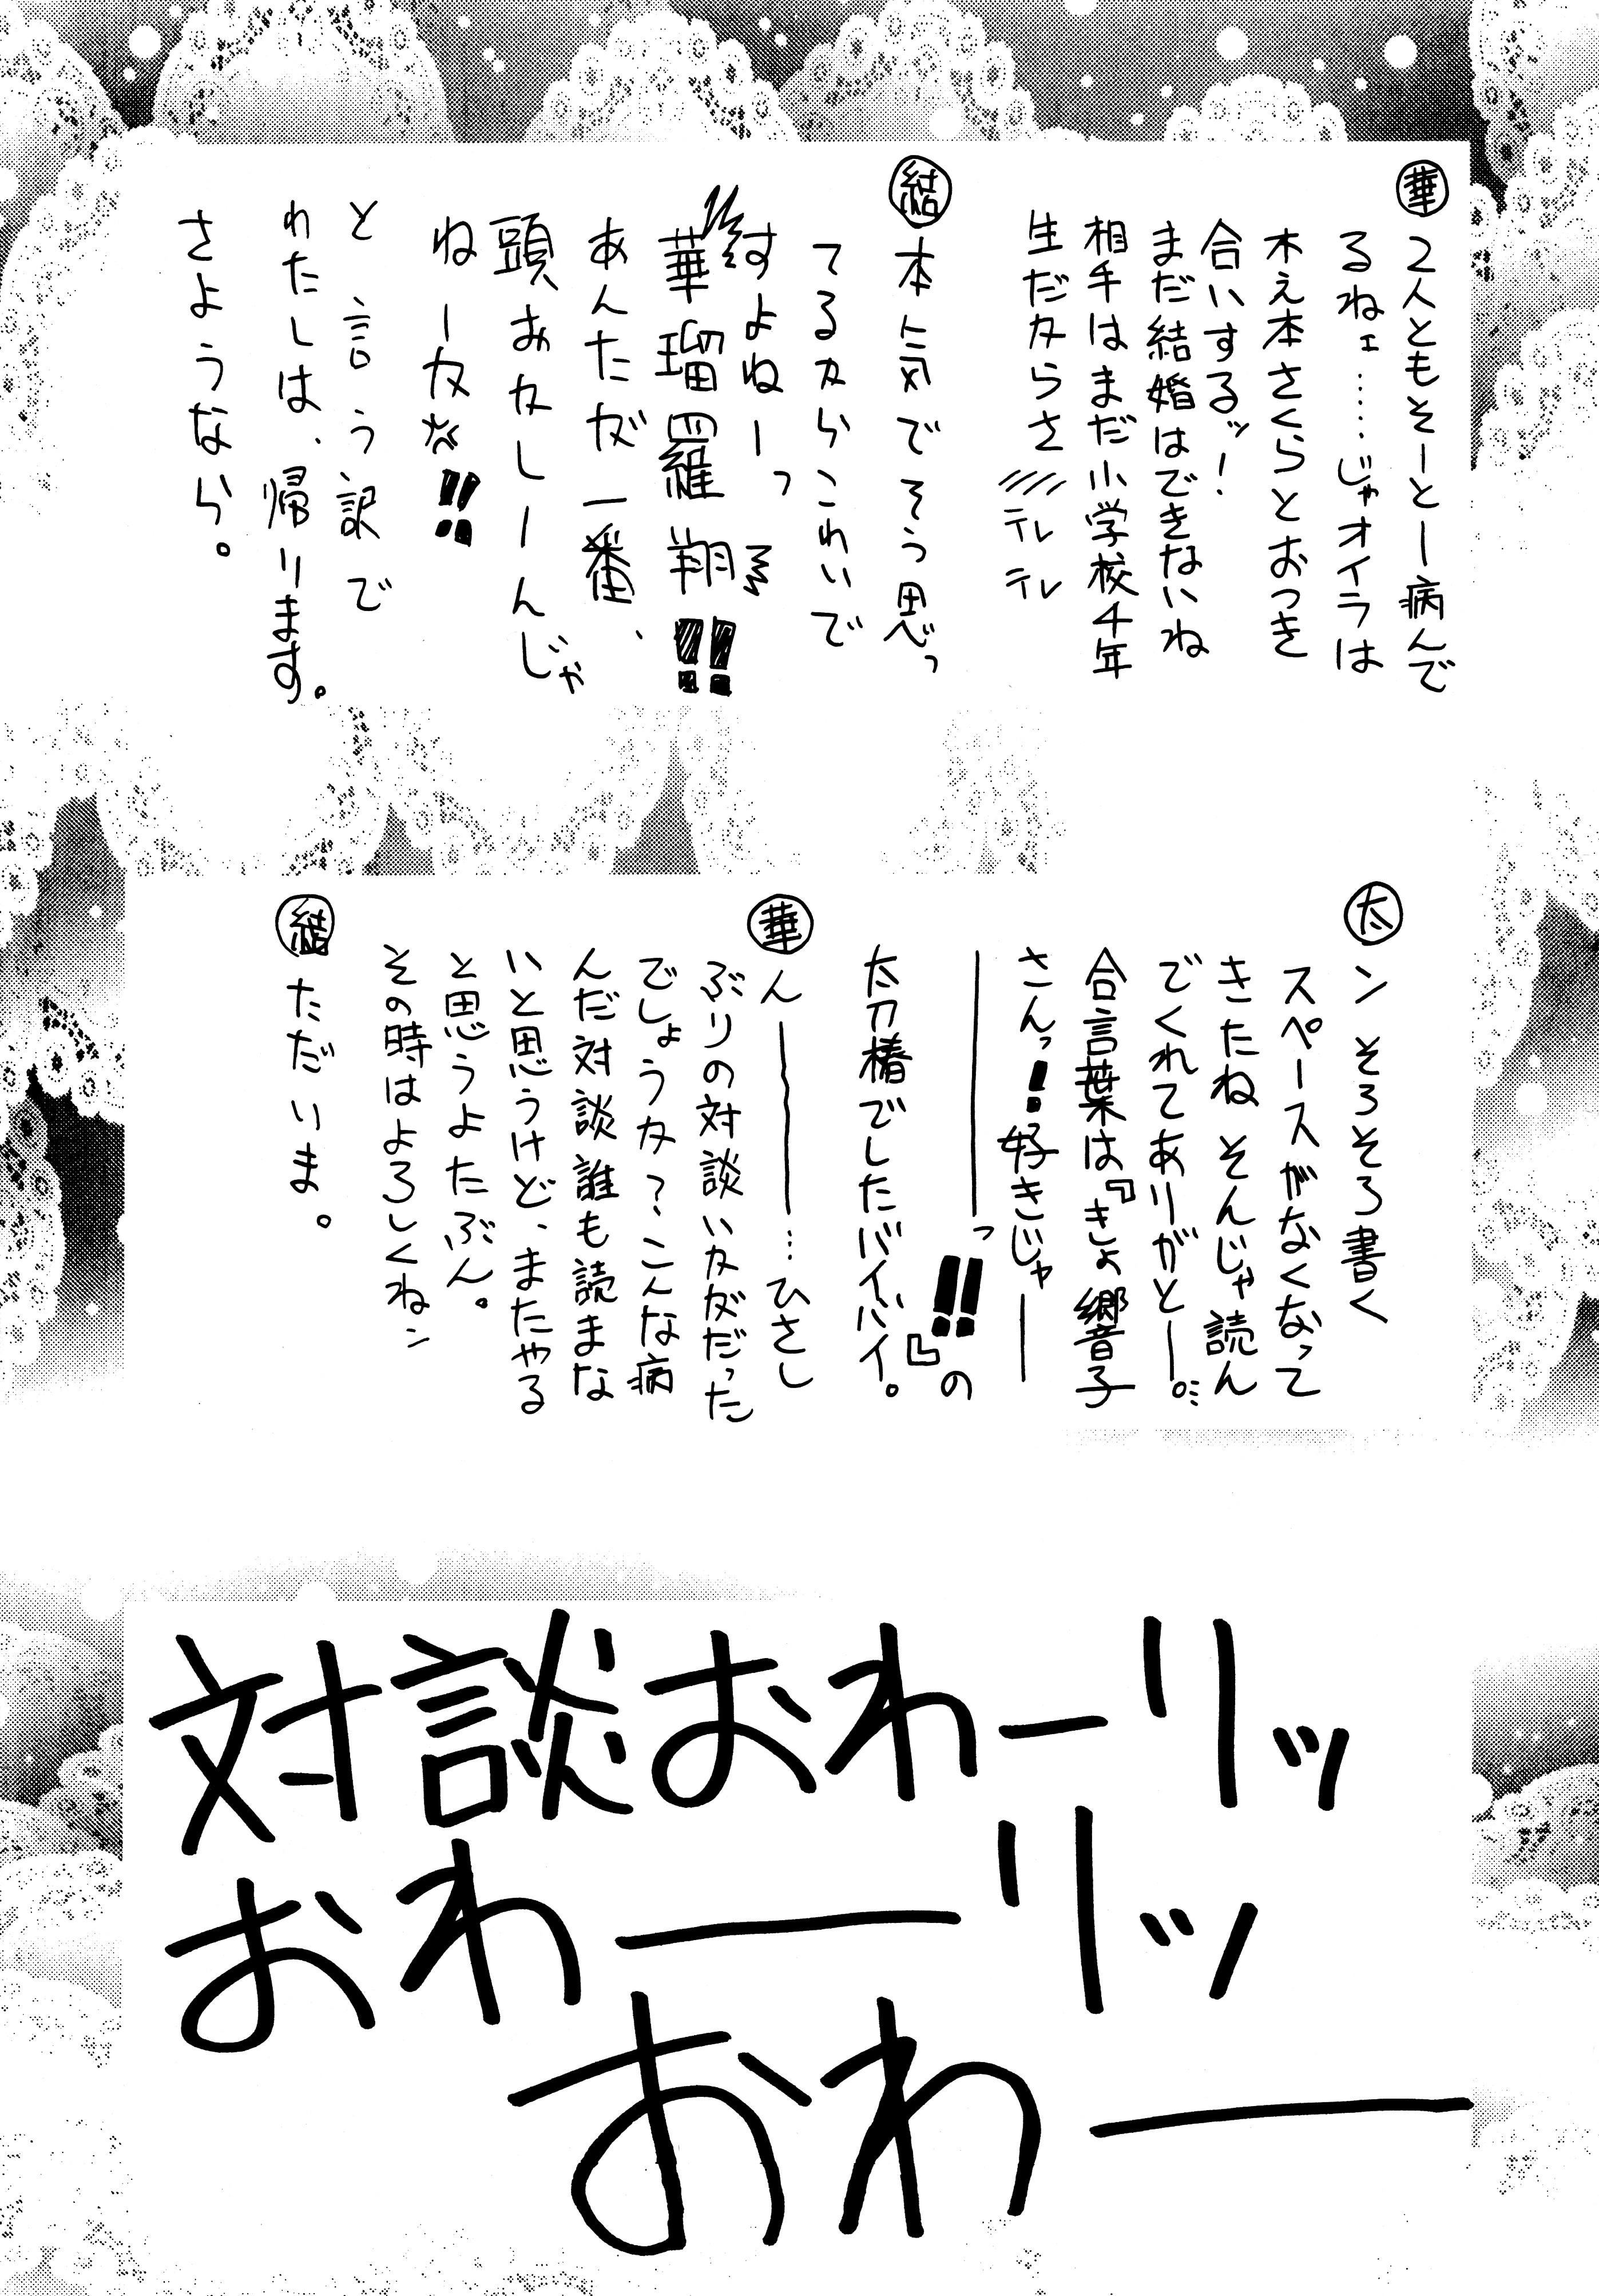 華 2人ともそーとー病んで
るねェ……じゃオイラは
木え本さくらとおつき
合いするッ！
まだ結婚はできないね
相手はまだ小学校4年
生だカらさ///テレテレ
結 本気でそう思っ
てるカらこわいで
すよねーっ
華瑠羅翔!!
あんたが一番、
頭おカしーんじゃ
ねーカ!!
と言う訳で
わたしは、帰ります。
さようなら。
太 ン そろそろ書く
スペースがなくなって
きたね そんじゃ読ん
でくれてありがとー。
合言葉は『きょ響子
さんっ！好きじゃー
ーっ!!』の
太刀椿でしたバイバイ。
華 んー…ひさし
ぶりの対談いカがだった
でしょうカ？こんな病
んだ対談誰も読まな
いと思うけど、またやる
と思うよたぶん。
その時はよろしくねン
結 ただいま。
対談おわーリッ
おわーリッ
おわー